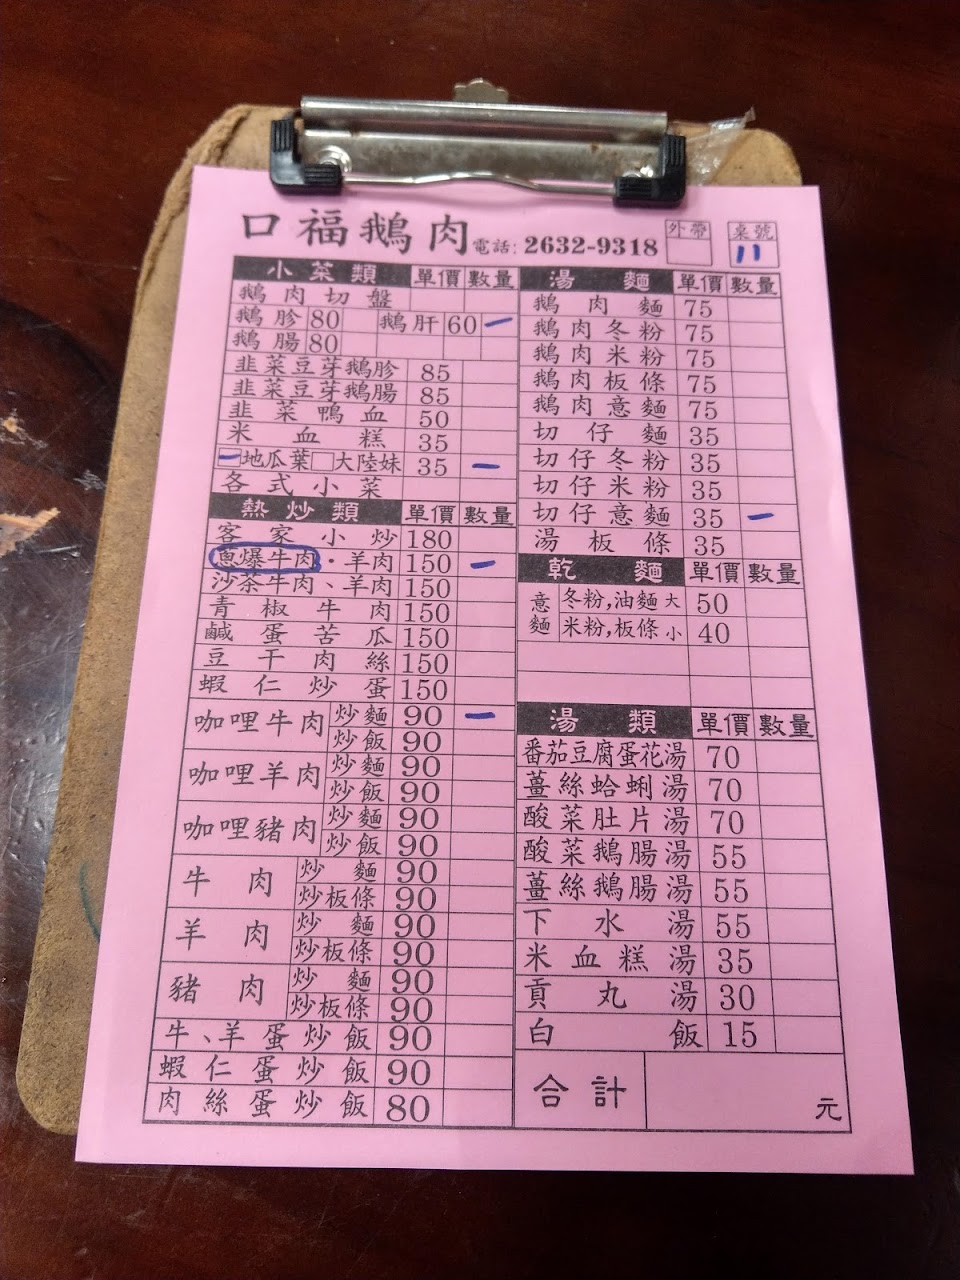 口福鵝肉 電話: 2632-9318 外帶 桌號
11
小菜類 單價 數量
鵝肉切盤
鵝胗 80 鵝肝 60 一
鵝腸 80
韭菜豆芽鵝胗 85
韭菜豆芽鵝腸 85
韭菜鴨血 50
米血糕 35
一 地瓜葉 □大陸妹 35 一
各式小菜
熱炒類 單價 數量
客家小炒 180
蔥爆牛肉·羊肉 150 一
沙茶牛肉、羊肉 150
青椒牛肉 150
鹹蛋苦瓜 150
豆干肉絲 150
蝦仁炒蛋 150
咖哩牛肉 炒麵 90 一
炒飯 90
咖哩羊肉 炒麵 90
炒飯 90
咖哩豬肉 炒麵 90
炒飯 90
牛肉 炒麵 90
炒板條 90
羊肉 炒麵 90
炒板條 90
豬肉 炒麵 90
炒板條 90
牛、羊蛋炒飯 90
蝦仁蛋炒飯 90
肉絲蛋炒飯 80
湯麵 單價 數量
鵝肉麵 75
鵝肉冬粉 75
鵝肉米粉 75
鵝肉板條 75
鵝肉意麵 75
切仔麵 35
切仔冬粉 35
切仔米粉 35
切仔意麵 35 一
湯板條 35
乾麵 單價 數量
意麵 冬粉,油麵 大 50
米粉,板條 小 40
湯類 單價 數量
番茄豆腐蛋花湯 70
薑絲蛤蜊湯 70
酸菜肚片湯 70
酸菜鵝腸湯 55
薑絲鵝腸湯 55
下水湯 55
米血糕湯 35
貢丸湯 30
白飯 15
合計 元